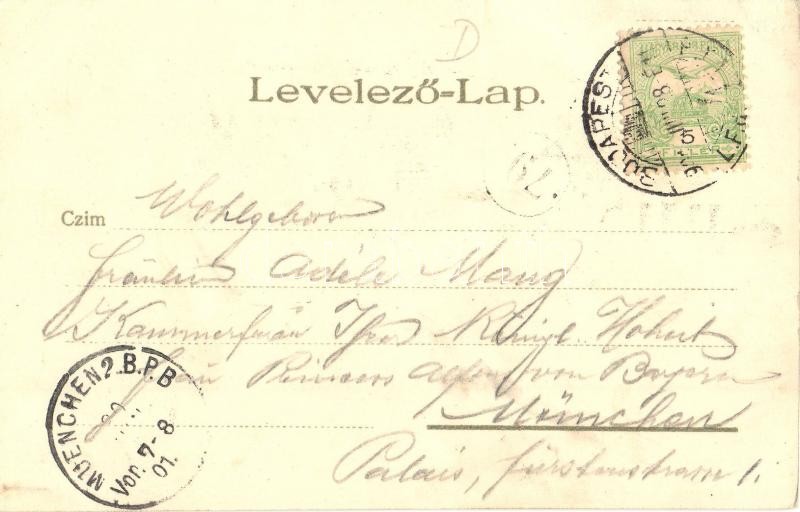 D
Levelező-Lap.
BUDAPEST
5
79
Czim Wohlgeboren
Fräulein Adèle Maug
Kammerfrau Ihrer Königl. Hoheit
Frau Prinzess Alfons von Bayern
München
Palais, Fürstenstrasse 1.
MUENCHEN 2.B.P.B
Vor. 7-8
01.